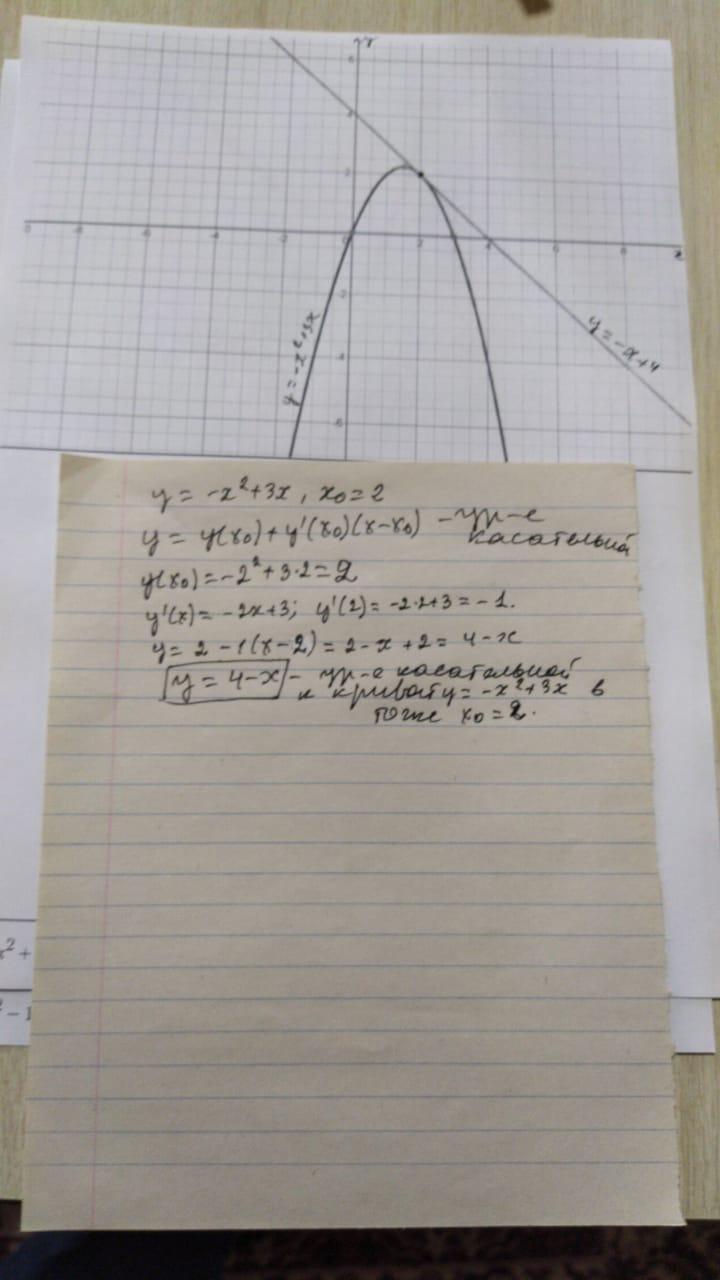 y
y = -x²+3x
y = -x+4
x
y = -x²+3x, x₀=2
y = y(x₀)+y'(x₀)(x-x₀) - ур-е касательной
y(x₀)=-2²+3·2=2
y'(x)= -2x+3; y'(2)= -2·2+3=-1.
y= 2 -1(x-2)=2-x+2= 4-x
y = 4-x - ур-е касательной
к кривой y= -x²+3x в
точке x₀=2.
x² +
² - 1